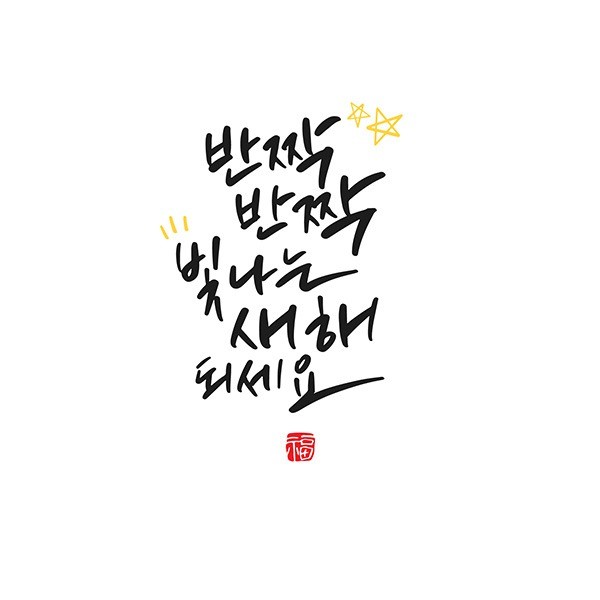 반짝
반짝
빛나는
새해
되세요
福